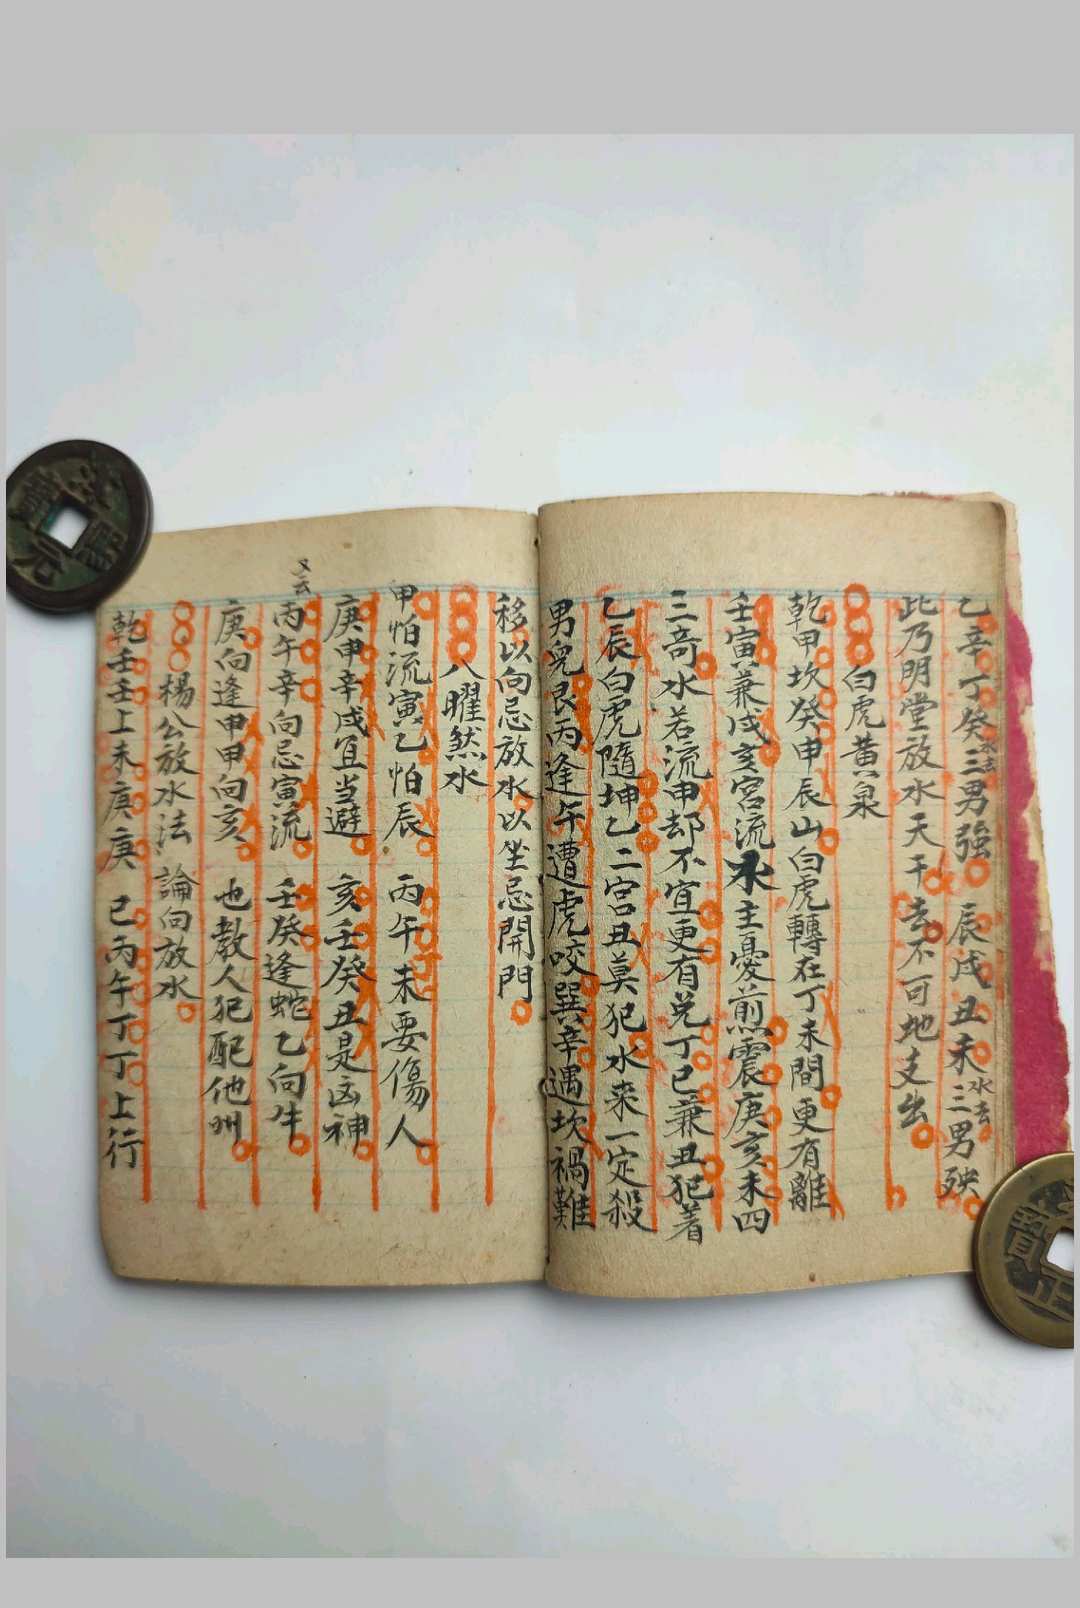 乙辛丁癸水去三男強 辰戌丑未水去三男殃
此乃明堂放水天干去不可地支出
白虎黄泉
乾甲坎癸申辰山白虎轉在丁未間更有離
壬寅兼戌亥宮流水主憂煎震庚亥未四
三奇水若流申却不宜更有兌丁巳兼丑犯着
乙辰白虎隨坤乙二宮丑莫犯水来一定殺
男兒艮丙逢午遭虎咬巽辛遇坎禍難
移以向忌放水以坐忌開門
八曜然水
甲怕流寅乙怕辰 丙午未要傷人
庚申辛戌宜当避 亥壬癸丑是凶神
又云
丙午辛向忌寅流 壬癸逢蛇乙向牛
庚向逢甲甲向亥 也教人犯配他州
楊公放水法 論向放水
乾壬壬上未庚庚 巳丙午丁丁上行